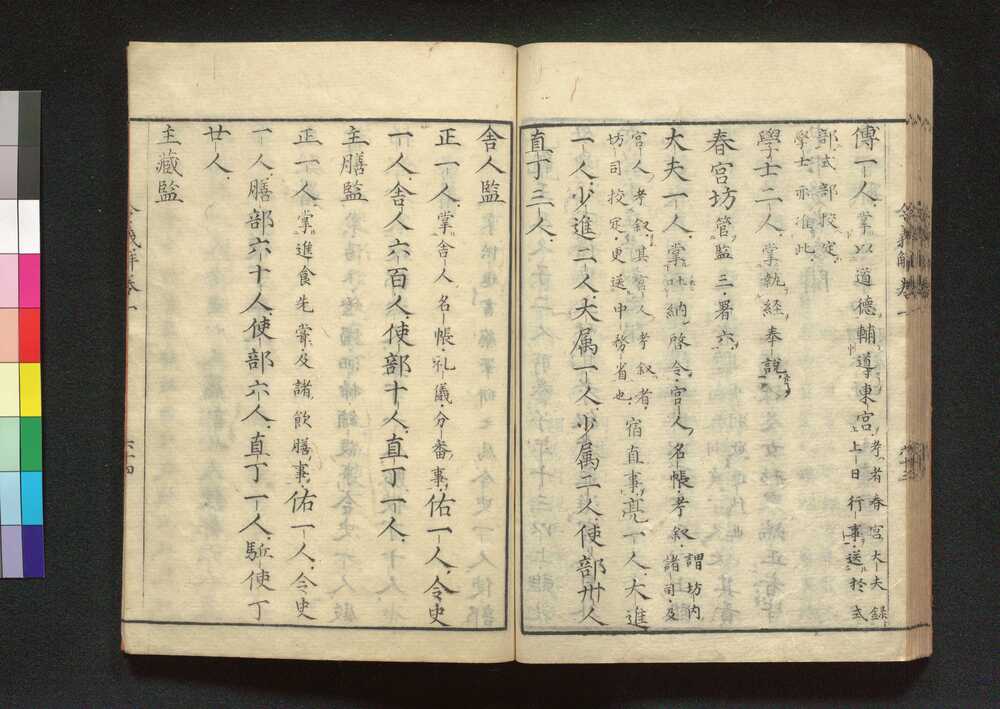 傅一人掌以道德輔導東宮考者春宮大夫録上日行事送於式
部式部校定
学士亦准此
學士二人掌執經奉說
春宮坊管監三署六
大夫一人掌吐納啓令宮人名帳考叙謂坊内諸司及
宮人考叙其宮人考叙者
坊司校定更送中務省也宿直事亮一人大進
一人少進二人大属一人少属二人使部卅人
直丁三人
舎人監
正一人掌舎人名帳礼儀分番事佑一人令史
一人舎人六百人使部十人直丁一人
主膳監
正一人掌進食先甞及諸飲膳事佑一人令史
一人膳部六十人使部六人直丁一人駈使丁
廿人
主藏監